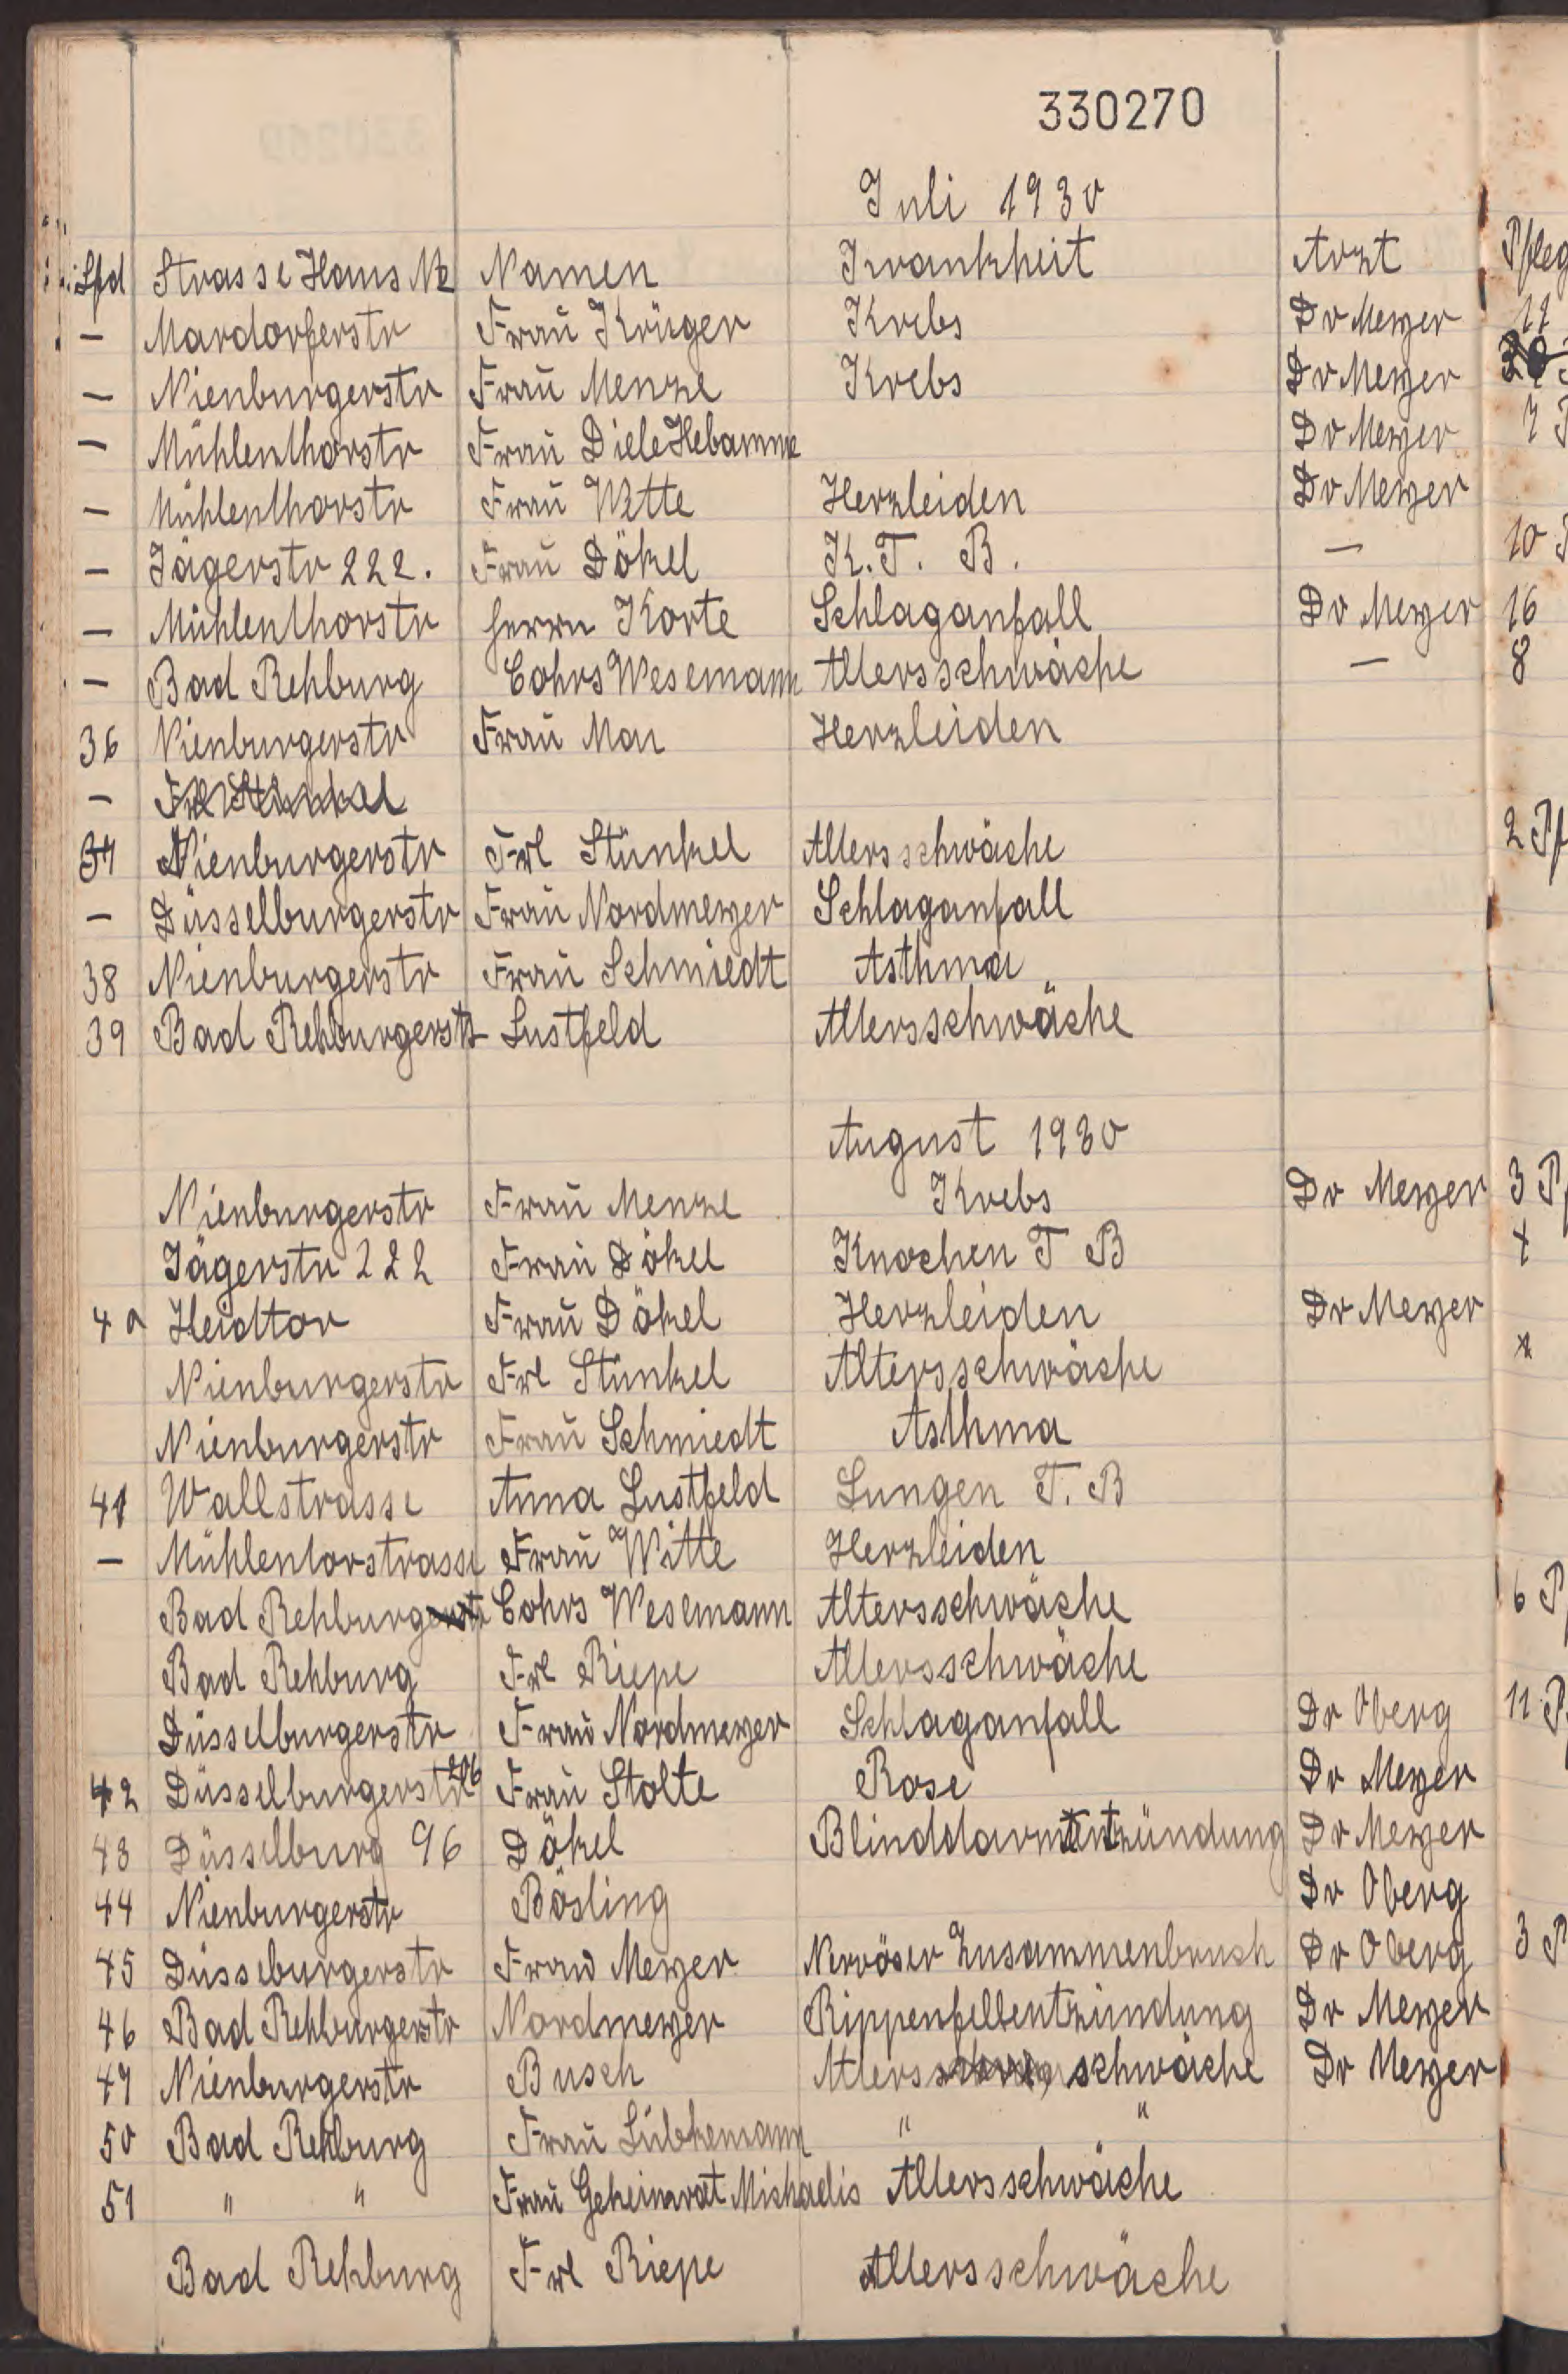 330270
Juli 1930
Lfd Strasse Haus Nr Namen Krankheit Arzt Pfleg
— Mardorferstr Frau Krüger Krebs Dr Meyer 11
— Nienburgerstr Frau Menze Krebs Dr Meyer
— Mühlenthorstr Frau Diele Hebamme Dr Meyer 7 P
— Mühlenthorstr Frau Witte Herzleiden Dr Meyer
— Jägerstr 222. Frau Dökel K. T. B. — 10
— Mühlenthorstr Herrn Korte Schlaganfall Dr Meyer 16
— Bad Rehburg Cohrs Wesemann Altersschwäche — 8
36 Nienburgerstr Frau Mau Herzleiden
— Frl Stünkel
37 Nienburgerstr Frl Stünkel Altersschwäche 2 Pf
— Düsselburgerstr Frau Nordmeyer Schlaganfall
38 Nienburgerstr Frau Schmiedt Asthma
39 Bad Rehburgerstr Lustfeld Altersschwäche
August 1930
Nienburgerstr Frau Menze Krebs Dr Meyer 3 P
Jägerstr 222 Frau Dökel Knochen T B
40 Heidtor Frau Dökel Herzleiden Dr Meyer
Nienburgerstr Frl Stünkel Altersschwäche
Nienburgerstr Frau Schmiedt Asthma
41 Wallstrasse Anna Lustfeld Lungen T. B
— Mühlentorstrasse Frau Witte Herzleiden
Bad Rehburgerstr Cohrs Wesemann Altersschwäche 6 P
Bad Rehburg Frl Riepe Altersschwäche
Düsselburgerstr Frau Nordmeyer Schlaganfall Dr Oberg 11 P
42 Düsselburgerstr 206 Frau Stolte Rose Dr Meyer
43 Düsselburg 96 Dökel Blinddarmentzündung Dr Meyer
44 Nienburgerstr Bösling Dr Oberg
45 Düsseburgerstr Frau Meyer Nervöser Zusammenbruch Dr Oberg 3 P
46 Bad Rehburgerstr Nordmeyer Rippenfellentzündung Dr Meyer
47 Nienburgerstr Busch Alters schwäche Dr Meyer
50 Bad Rehburg Frau Lübkemann " "
51 " " Frau Geheimrat Michaelis Altersschwäche
Bad Rehburg Frl Riepe Altersschwäche